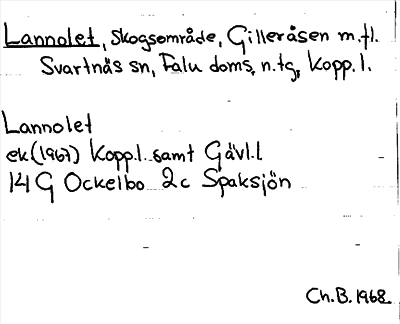 Lannolet, Skogsområde, Gilleråsen m.fl.
Svartnäs sn, Falu doms. n.tg, Kopp.l.
Lannolet
ek (1967) Kopp.l. samt Gävl.l
14 G Ockelbo 2c Spaksjön
Ch.B. 1968